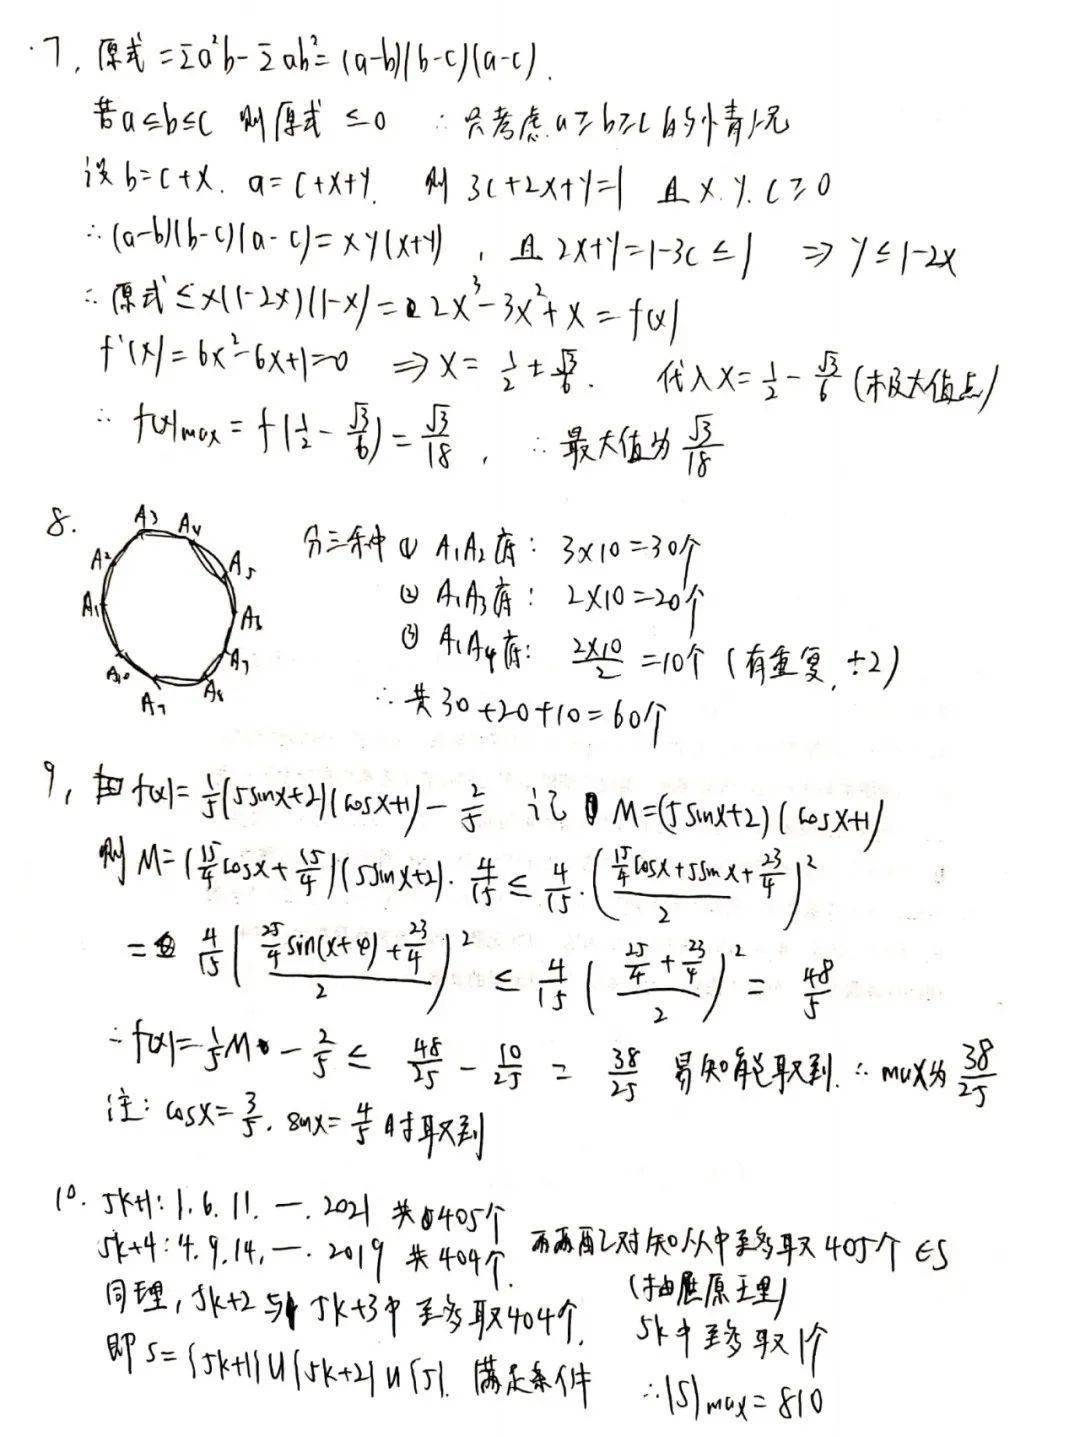 7, 原式 = Σa²b - Σab² = (a-b)(b-c)(a-c).
若a≤b≤c 则原式 ≤0 ∴只考虑a≥b≥c的情况
设b=c+x. a=c+x+y. 则 3c+2x+y=1 且x.y.c≥0
∴(a-b)(b-c)(a-c)=xy(x+y), 且2x+y=1-3c≤1 ⇒ y≤1-2x
∴原式≤x(1-2x)(1-x)=2x³-3x²+x=f(x)
f'(x)=6x²-6x+1=0 ⇒x=1/2±√3/6. 代入x=1/2-√3/6(极大值点)
∴ f(x)max=f(1/2-√3/6)=√3/18, ∴最大值为√3/18
8.
A3 A4
A2 A5
A1 A6
A10 A7
A7 A8
分三种 ① A1A2底: 3×10=30个
② A1A3底: 2×10=20个
③ A1A4底: 2×10/2=10个 (有重复, ÷2)
∴共30+20+10=60个
9, 由f(x)=1/5(5sinx+2)(cosx+1)-2/5 记 M=(5sinx+2)(cosx+1)
则M=(15/4cosx+15/4)(5sinx+2)·4/15≤4/15·((15/4cosx+5sinx+23/4)/2)²
=4/15((25/4sin(x+φ)+23/4)/2)²≤4/15((25/4+23/4)/2)²=48/5
∴f(x)=1/5M-2/5≤48/25-10/25=38/25 易知能取到.∴max为38/25
注: cosx=3/5, sinx=4/5时取到
10. 5k+1: 1, 6, 11, —, 2021 共405个
5k+4: 4, 9, 14, —, 2019 共404个. 两两配对知从中至多取405个∈S
(抽屉原理)
同理, 5k+2与5k+3中至多取404个.
5k中至多取1个
即S={5k+1}∪{5k+2}∪{5}. 满足条件
∴|S|max=810